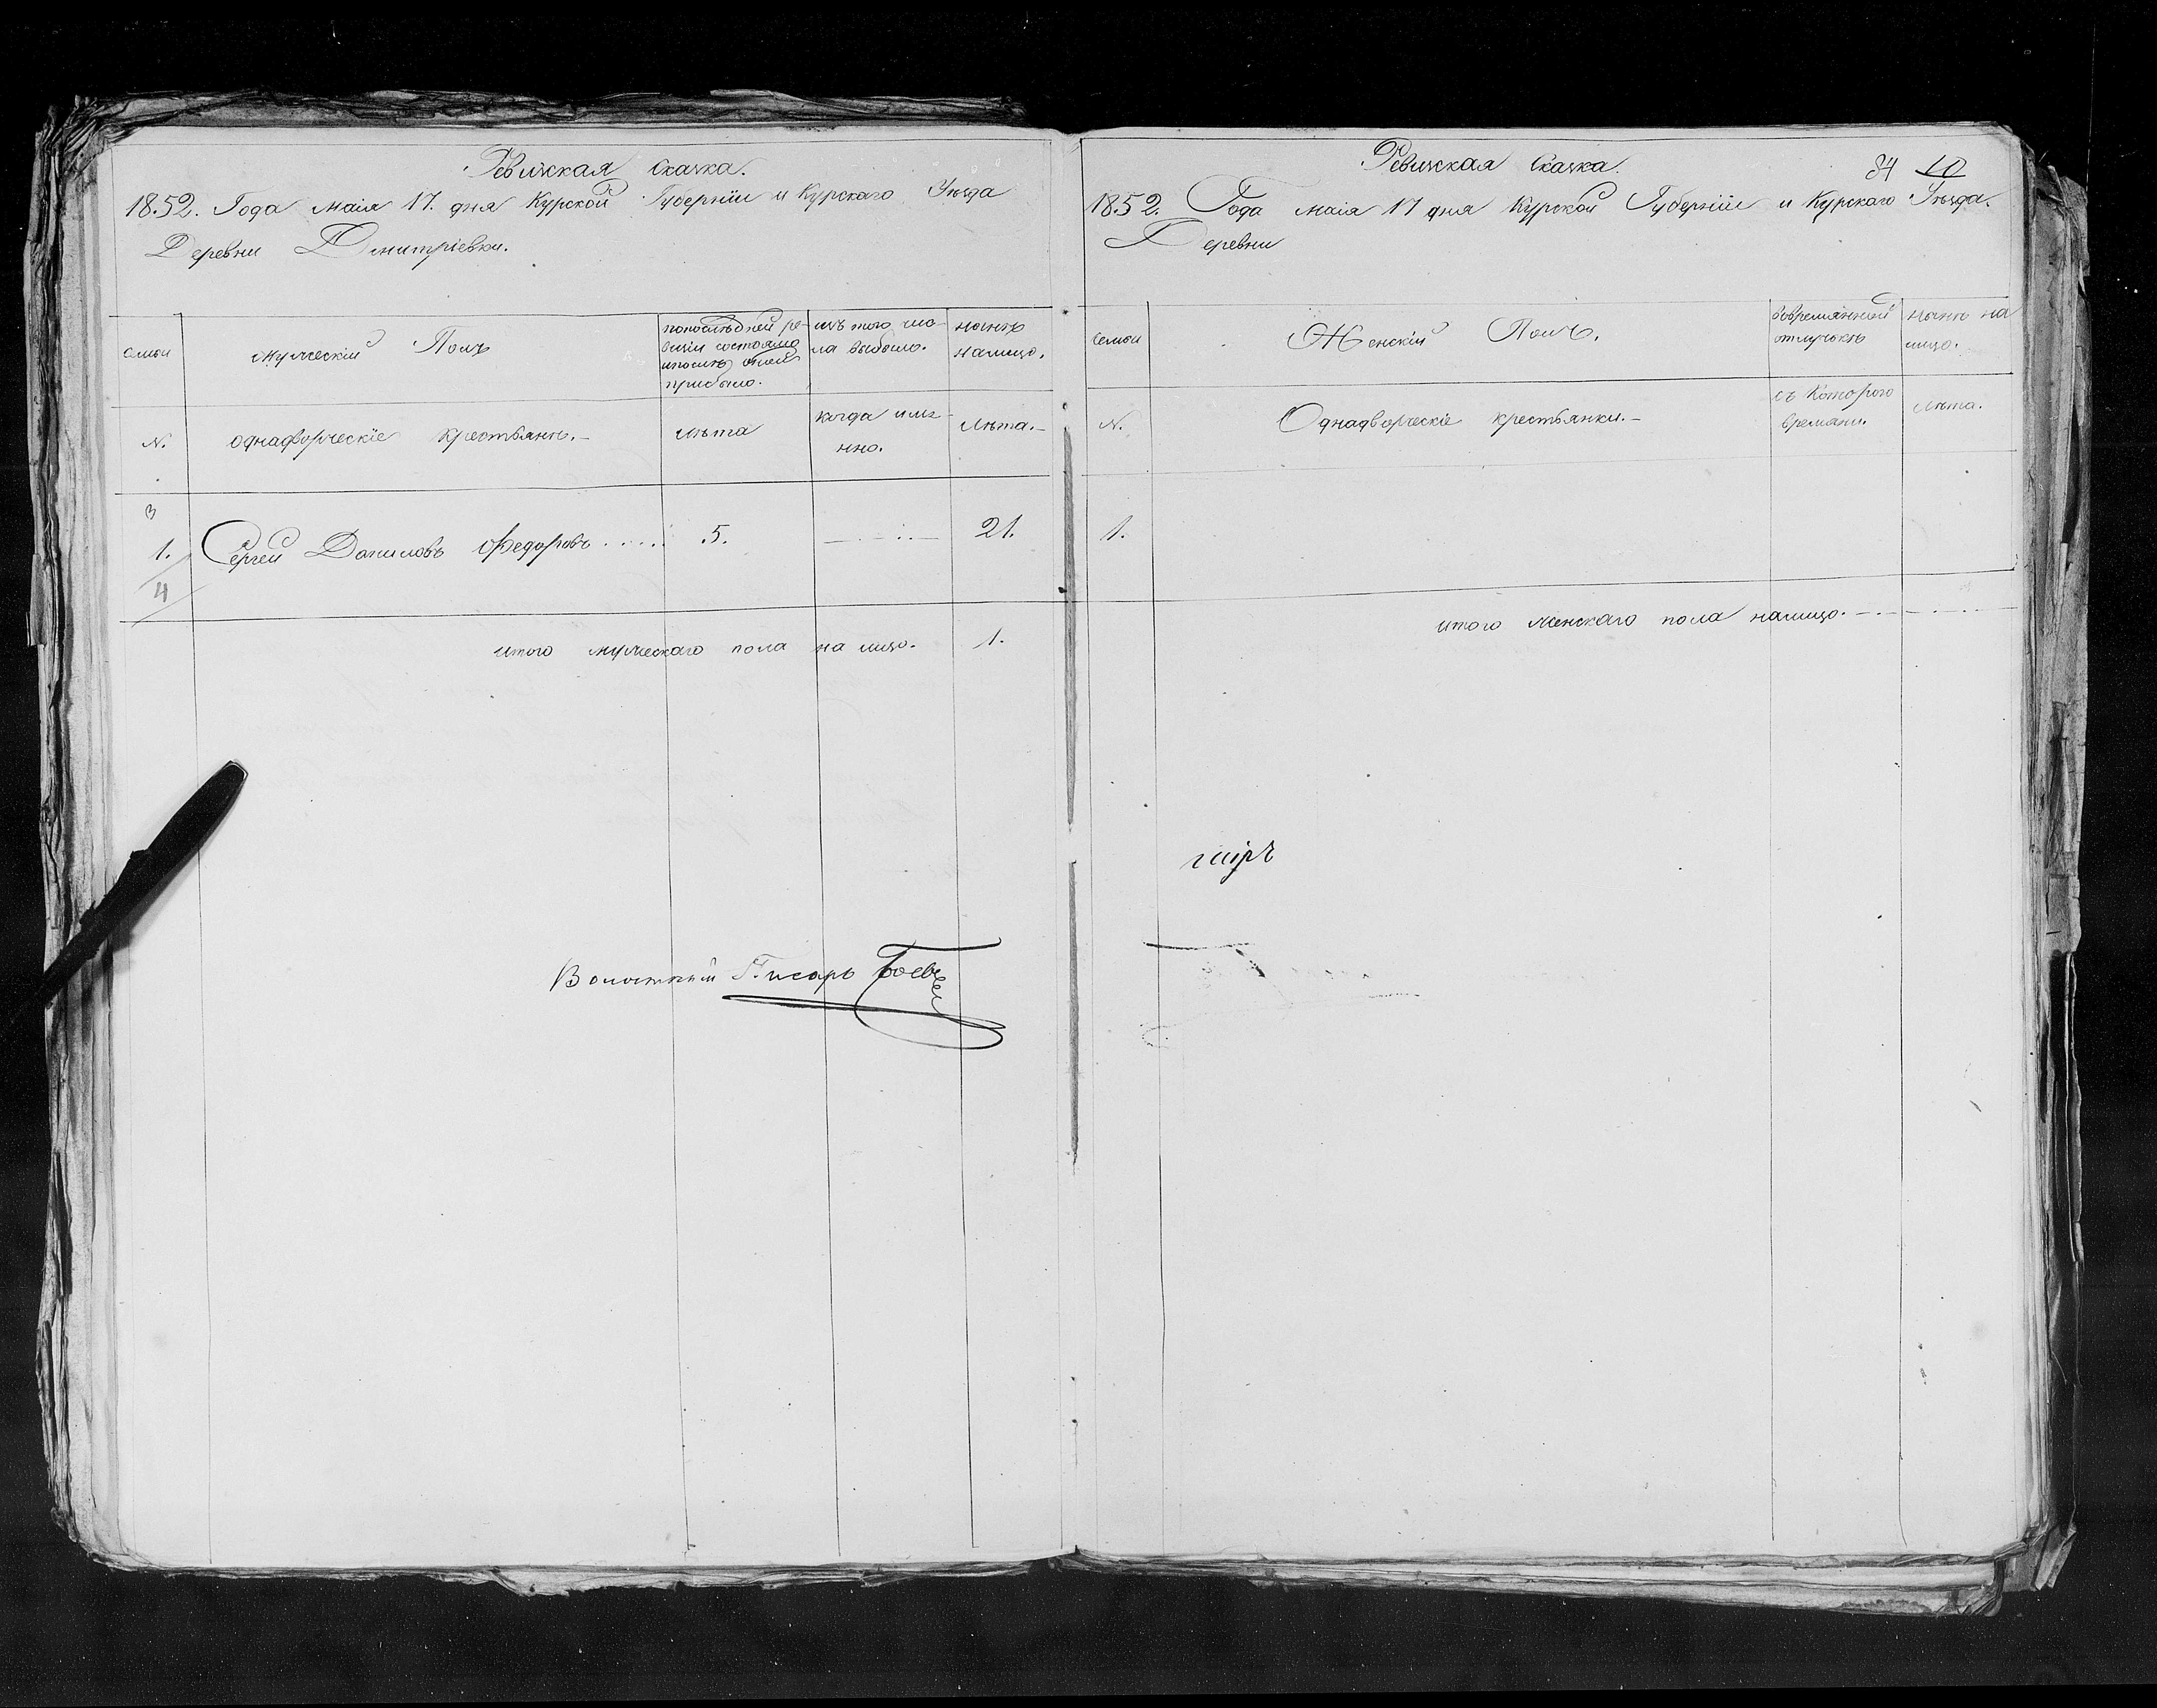 Ревижская Сказка.
1852. Года маія 17. дня Курской Губерніи и Курскаго Уѣзда
Деревни Дмитріевки.
семьи
мужескій Полъ
попослѣдней ре-
визіи состояло
ипослѣ оной
прибыло.
изъ того чис-
ла выбыло.
нынѣ
налицо.
N.
однадворческіе крестьянѣ.-
лѣта
когда имг-
нно.
Лѣта.-
3
1.
Сергей Даниловъ Федоровъ......
5.
21.
4
итого мужескаго пола на лицо. 1.
Волостной Писарь Боевъ
Ревижская Сказка.
84 10
1852. Года маія 17 дня Курской Губерніи и Курскаго Уѣзда.
Деревни
семьи
Женскій Полъ.
вовремянной
отлучькѣ
нынѣ на
лицо.
N.
Однадворческіе крестьянки.-
съ Которого
времани.
Лѣта.
1.
итого женскаго пола налицо.